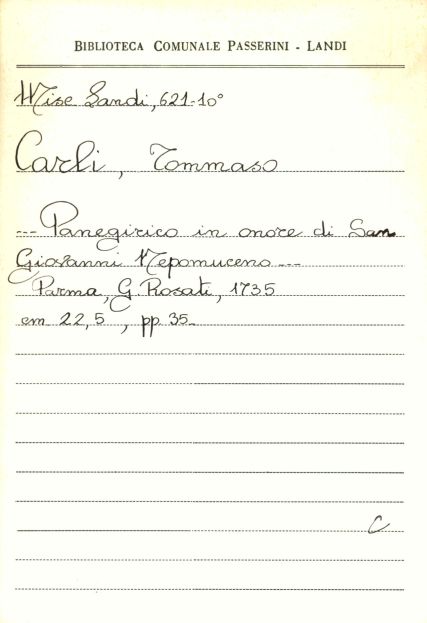 BIBLIOTECA COMUNALE PASSERINI - LANDI
Misc Landi, 621-10°
Carli, Tommaso
--- Panegirico in onore di San
Giovanni Nepomuceno ---
Parma, G. Rosati, 1735
cm 22,5, pp. 35
C